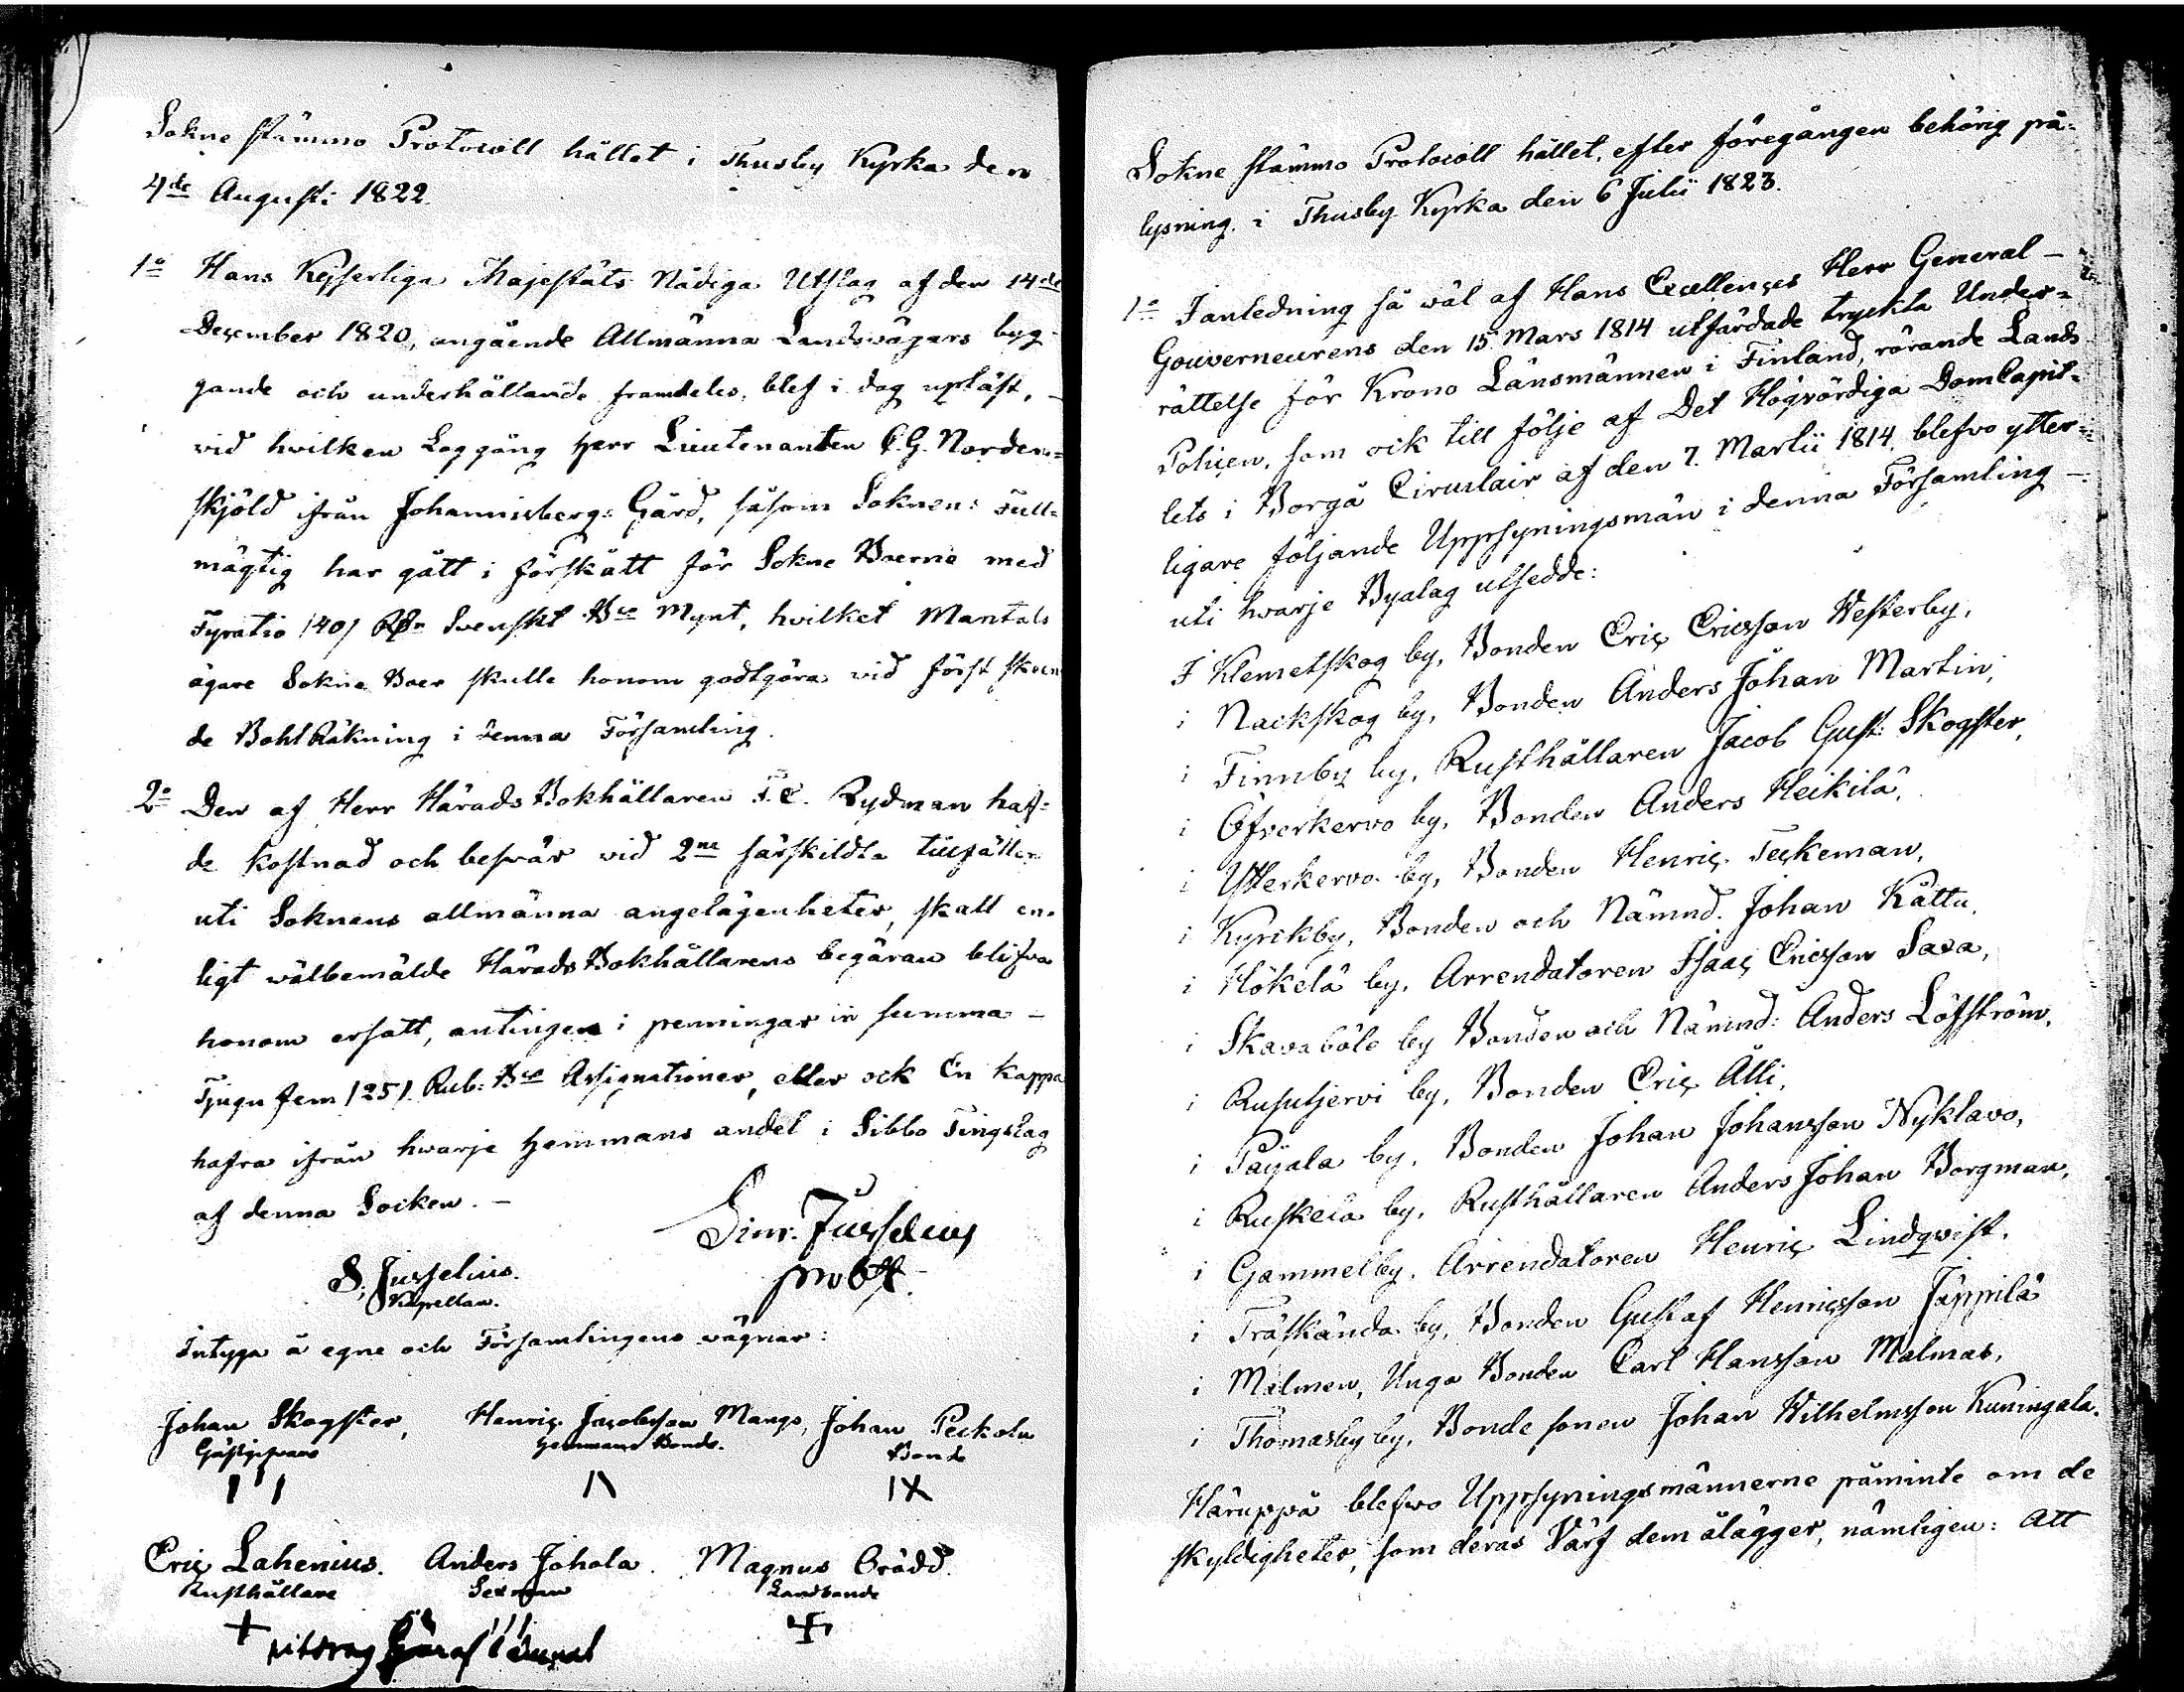 Sokne stämmo Protocoll hållet i Thusby Kyrka den
4de Augusti 1822.
1o Hans Kejserliga Majestäts Nådiga Utslag af den 14de
December 1820, angående Allmänna Landsvägars byg-
gande och underhållande framdeles, blef i dag upläst, –
vid hvilken Loggång Herr Lieutenanten C.G. Norden=
skjöld ifrån Johannisbergs Gård, såsom Soknens Full=
mägtig har gått i förskått för Sokne Boerne med
Fyratio /40/ RD Svenskt Bco Mynt, hvilket Mantals
ägare Sokne Boer skulle honom godtgöra vid först skeen
de Bohl Räkning i denna Församling.
2o Den af Herr Härads Bokhållaren F.E. Rydman haf=
de kostnad och besvär vid 2ne särskildta tillfällen
uti Soknens allmänna angelägenheter, skall en=
ligt välbemälde Härads Bokhållarens begäran blifva
honom ersatt, antingen i penningar in summa –
Tjugu fem /25/ Rub: Bco Assignationer, eller ock En kappa
hafra ifrån hwarje Hemmans andel i Sibbo Tingslag
af denna Socken. –
Sim. Jusselius
S. Jusselius. probst.
Kapellan.
Intyga å egne och Församlingens vägnar:
Johan Skogster, Henriç Jacobsson Mangs, Johan Peckola
Gästgifvare Hemmans Bonde. Bonde
Eriç Lahenius. Anders Johola. Magnus Brädd.
Rusthållare Sexman Landbonde
Sokne stämmo Protocoll hållet, efter föregången behörig på=
lysning, i Thusby Kyrka den 6 Julii 1823.
1o I anledning så wäl af Hans Excellençes Herr General –
Gouverneurens den 15 Mars 1814 utfärdade tryckta Under=
rättelse för Krono Länsmännen i Finland, rörande Lands
Policen, som ock till följe af Det Högvördiga DomCapit=
lets i Borgå Circulair af den 7. Martii 1814 blefvo ytter=
ligare följande Uppsyningsmän i denna Församling –
uti hvarje Byalag utsedde:
I Klemetskog by, Bonden Eriç Ericsson Westerby,
i Nackskog by, Bonden Anders Johan Martin,
i Finnby by, Rusthållaren Jacob Gust: Skogster,
i Öfverkervo by, Bonden Anders Heikilä,
i Ytterkervo by, Bonden Henriç Teckeman,
i Kyrckby, Bonden och Nämnd. Johan Kättu,
i Hökelä by, Arrendatoren Isaaç Ericsson Saxa,
i Skavaböle by Bonden och Nämnd: Anders Löfström,
i Rusutjervi by, Bonden Eriç Älli,
i Paijala by, Bonden Johan Johansson Nyklavo,
i Ruskela by, Rusthållaren Anders Johan Borgman,
i Gammelby, Arrendatoren Henriç Lindqvist,
i Träskända by, Bonden Gustaf Henriçsson Jäppilä
i Malmen, Unga Bonden Carl Hansson Malmas,
i Thomasby by, Bonde sonen Johan Wilhelmsson Kuningala.
Häruppå blefvo Uppsyningsmännerne påminte om de
skyldigheter, som deras Värf dem ålägger, nämligen: Att